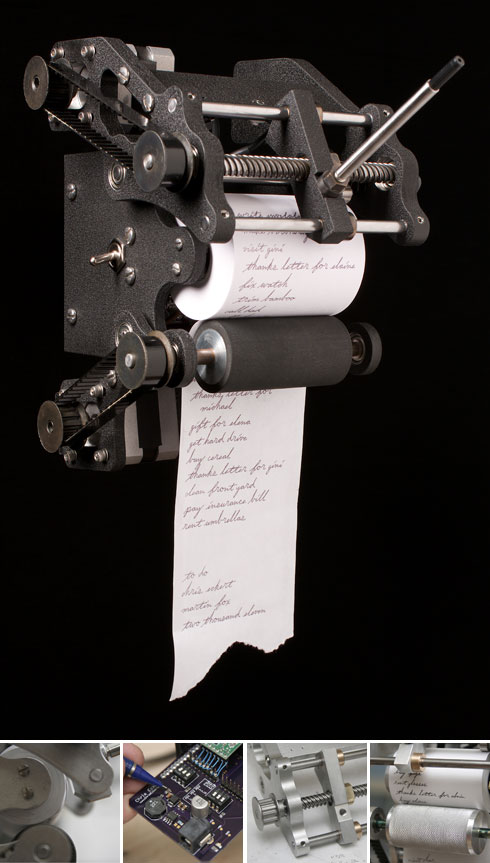 visit gini
thanks letter for elaina
fix watch
trim bamboo
call dad
thanks letter for
michael
gift for elena
get hard drive
buy cereal
thanks letter for gini
clean front yard
pay insurance bill
rent umbrellas
to do
chris eckert
martin fox
two thousand eleven
thanks letter for